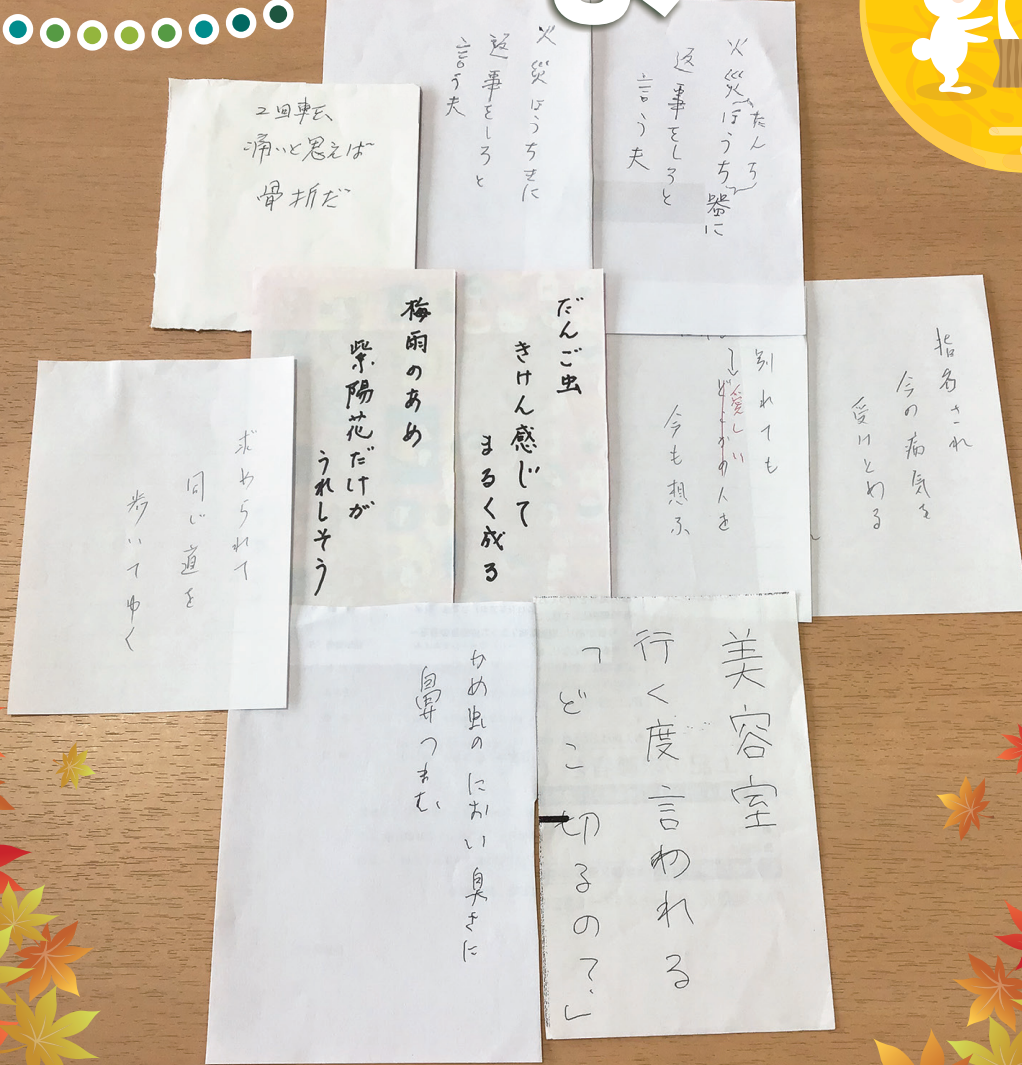 2回転、
痛いと思えば
骨折だ
火災ほうちきに
返事をしろと
言う夫
火災ほうち器に
たんち
返事をしろと
言う夫
梅雨のあめ
紫陽花だけが
うれしそう
だんご虫
きけん感じて
まるく成る
別れても
愛しい
の人を
今も想ふ
指名され
今の病気を
受けとめる
求められて
同じ道を
歩いてゆく
かめ虫の におい臭さに
鼻つまむ
美容室
行く度言われる
「どこ切るの?」